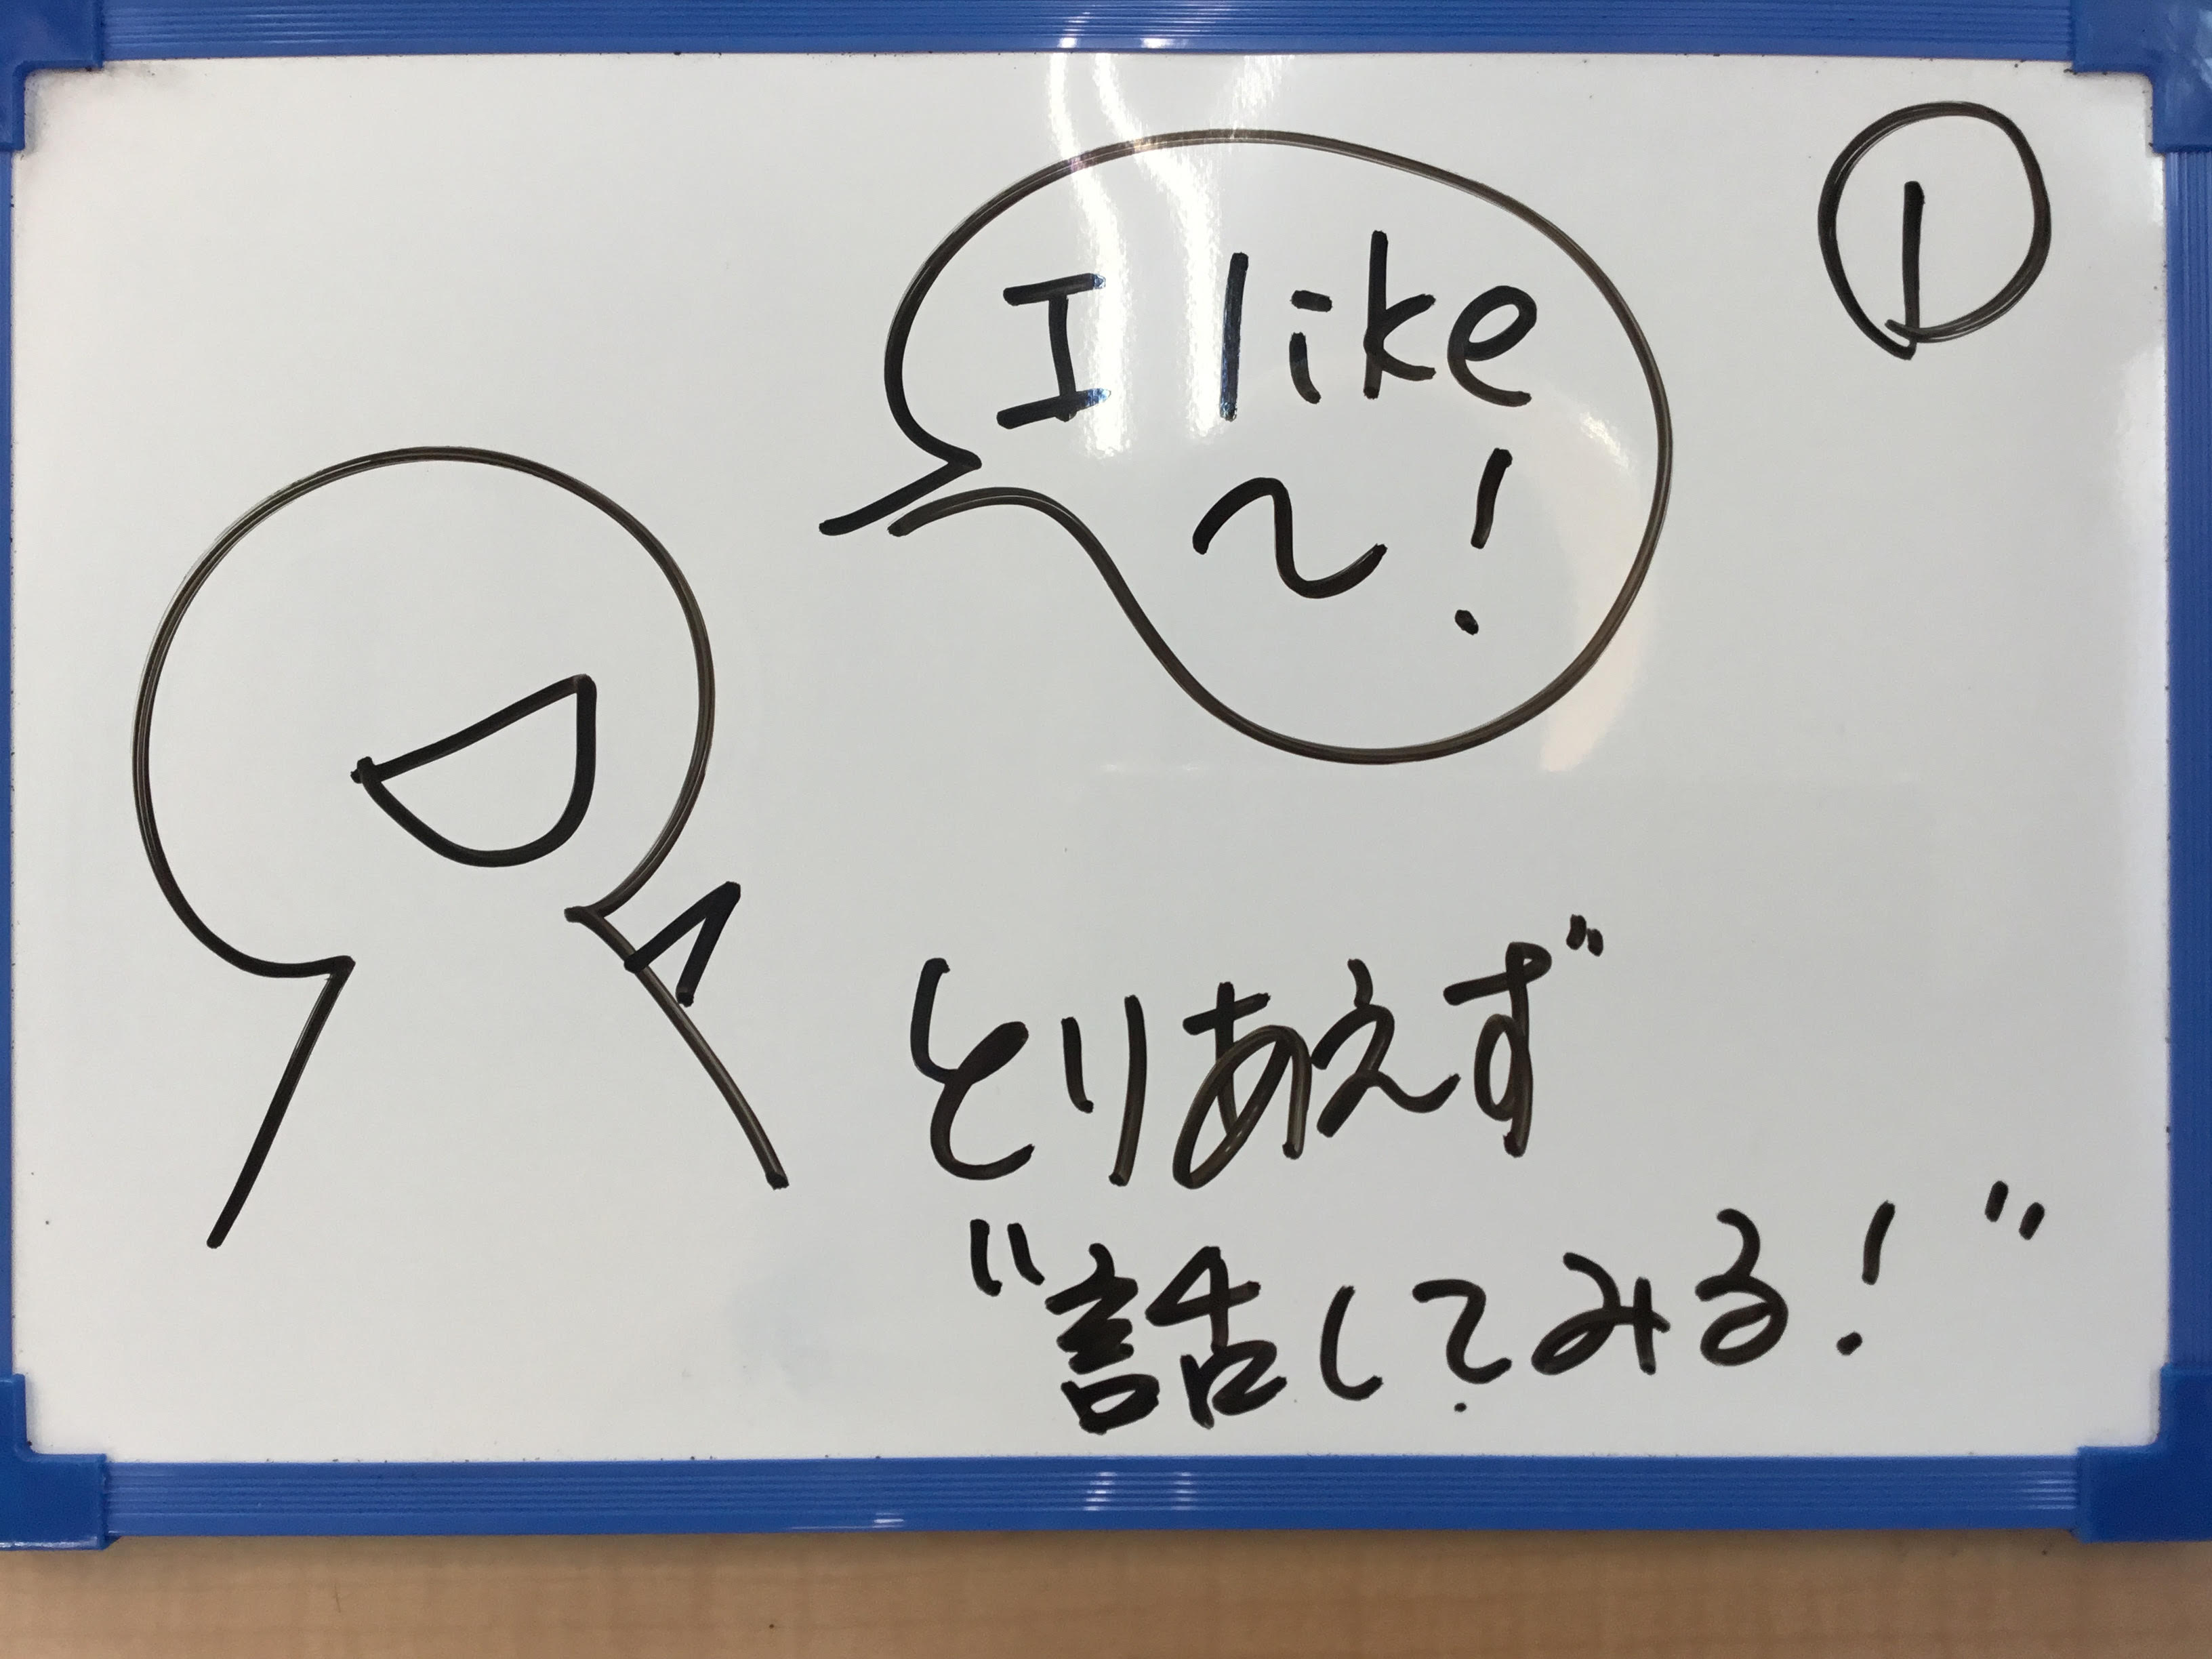 ①
I like
～!
とりあえず
"話してみる!"